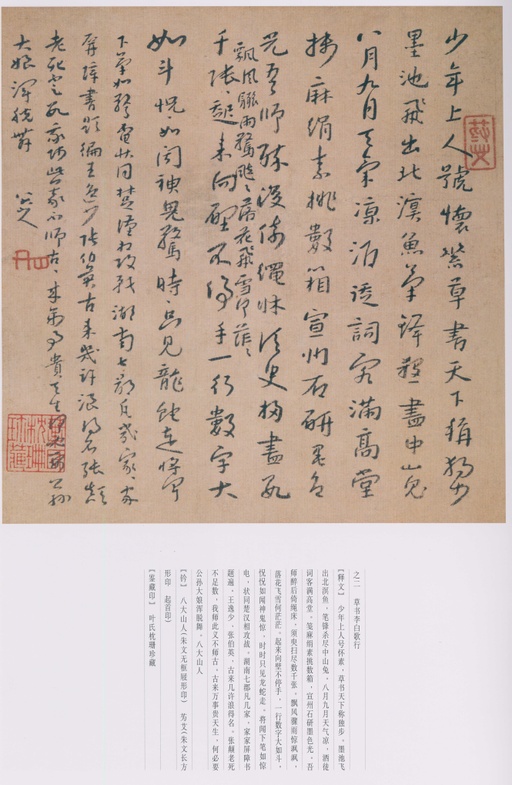 少年上人號懷素草書天下稱獨步
墨池飛出北溟魚筆鋒殺盡中山兔
八月九月天氣凉酒徒詞客滿高堂
牋麻絹素排數箱宣州石研墨色
光吾師醉後倚繩床須臾掃盡數
飄風驟雨驚颯〻落花飛雪何茫〻
千張〻起來向壁不停手一行數字大
如斗怳如聞神鬼驚時〻只見龍蛇走將聞
下筆如驚電狀同楚漢相攻戰湖南七郡凡幾家〻家
屏障書題遍王逸少張伯英古來幾許浪得名張顛
老死不足數我師此義不師古〻來萬事貴天生何必要公孫
大娘渾脫舞 八大
之二 草书李白歌行
【释文】 少年上人号怀素，草书天下称独步，墨池飞
出北溟鱼，笔锋杀尽中山兔，八月九月天气凉，酒徒
词客满高堂，笺麻绢素挑数箱，宣州石研墨色光，吾
师醉后倚绳床，须臾扫尽数千张，飘风骤雨惊飒飒，
落花飞雪何茫茫，起来向壁不停手，一行数字大如斗，
怳怳如闻神鬼惊，时时只见龙蛇走，将闻下笔如惊
电，状同楚汉相攻战，湖南七郡凡几家，家家屏障书
题遍，王逸少，张伯英，古来几许浪得名，张颠老死
不足数，我师此义不师古，古来万事贵天生，何必要
公孙大娘浑脱舞。八大山人
【钤】 八大山人（朱文无框屐形印） 艾（朱文长方
形印 起首印）
【鉴藏印】 叶氏枕珊珍藏